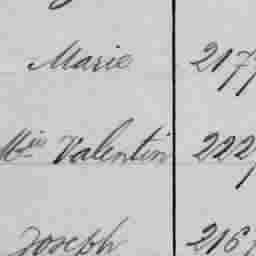 Marie 217
Mie Valentin 222
Joseph 216